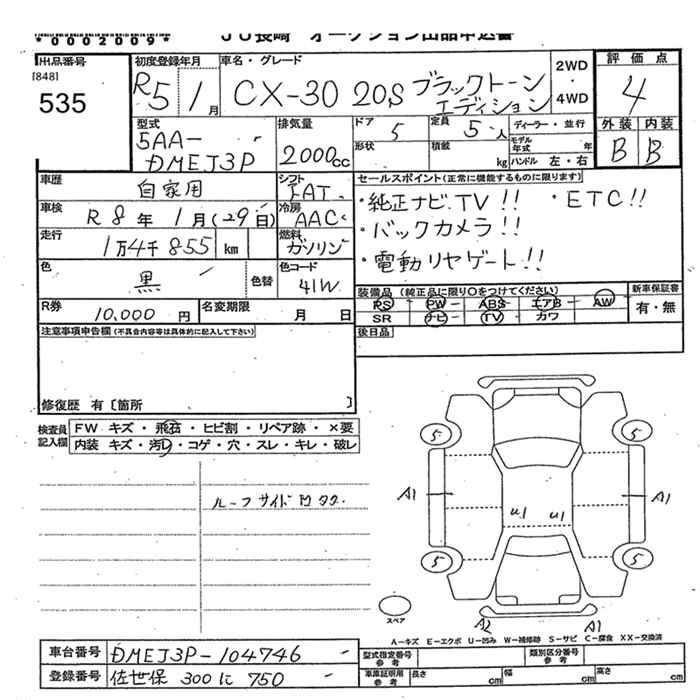 *0002009*
JU長崎 オークション出品申込書
出品番号
[848]
535
初度登録年月
R5 1月
車名・グレード
CX-30 20S ブラックトーン
エディション
2WD
・
4WD
評価点
4
外装 内装
B B
型式
5AA-
DMEJ3P
排気量
2000cc
ドア
5
形状
定員
5人
積載
kg
ディーラー・並行
モデル年式 年
ハンドル 左・右
車歴
自家用
シフト
FAT
車検
R8年 1月(29日)
冷房
AAC
走行
1万4千855 km
燃料
ガソリン
色
黒
色替
色コード
41W
R券
10,000 円
名変期限
月 日
セールスポイント(正常に機能するものに限ります)
・純正ナビ.TV!! ・ETC!!
・バックカメラ!!
・電動リヤゲート!!
装備品 (純正品に限り○をつけてください)
PS PW ABS エアB AW
SR ナビ TV カワ
新車保証書
有・無
後日品
注意事項申告欄(不具合内容等は具体的に記入して下さい)
修復歴 有〔箇所 〕
検査員
記入欄
FW キズ・飛石・ヒビ割・リペア跡・×要
内装 キズ・汚れ・コゲ・穴・スレ・キレ・破レ
ルーフサイド凹タク.
5 5
A1 A1
U1 U1
5 5
A2 A1
スペア
A-キズ E-エクボ U-凹み W-補修跡 S-サビ C-腐食 XX-交換済
車台番号
DMEJ3P-104746
登録番号
佐世保 300に 750
型式指定番号
参考
類別区分番号
参考
車庫証明用
参考
長さ cm
幅 cm
高さ cm